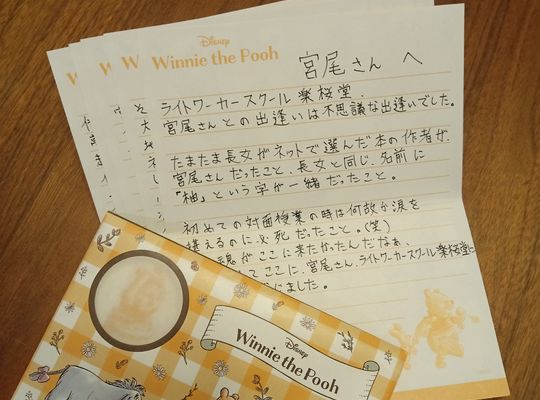 Disney
Winnie the Pooh
宮尾さん へ
ライトワーカースクール 楽桜堂.
宮尾さんとの出逢いは不思議な出逢いでした。
たまたま長女がネットで選んだ本の作者が、
宮尾さんだったこと、長女と同じ、名前に
「柚」という字が一緒だったこと。
初めての対面授業の時は何故か涙を
堪えるのに必死だったこと。(笑)
魂がここに来たかったんだなぁ、
てここに、宮尾さん、ライトワーカースクール楽桜堂に
じました。
W
W
W
Disney
Winnie the Pooh